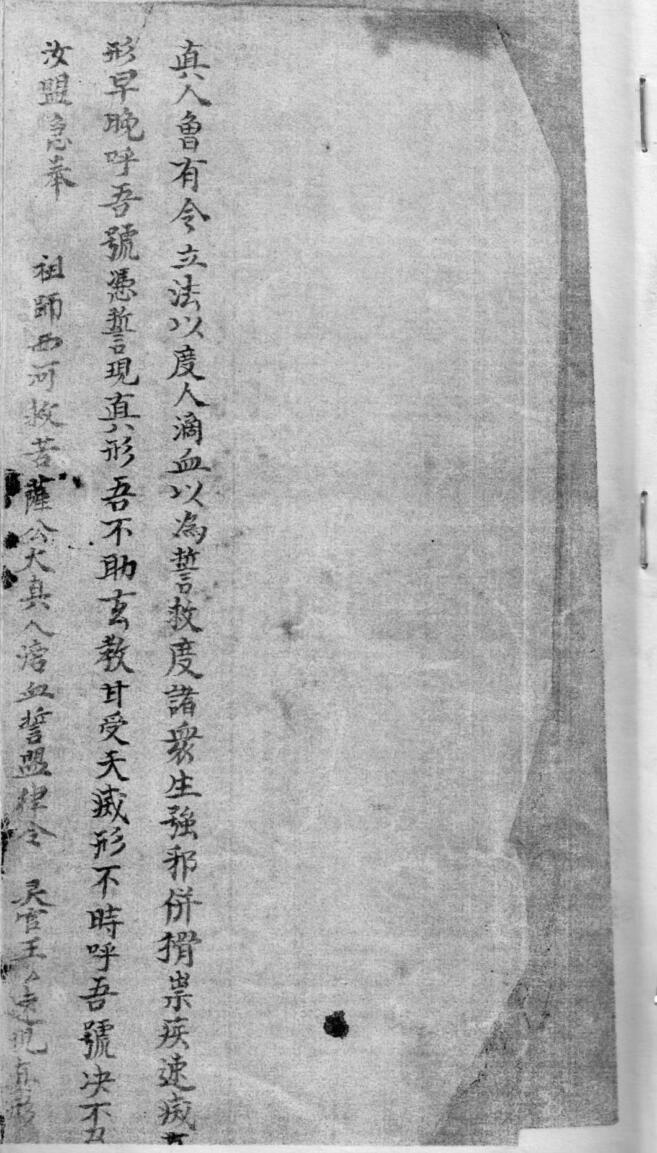 真人魯有令立法以度人滴血以為誓救度諸衆生強邪併搰祟疾速滅
形早晚呼吾號憑誓現真形吾不助玄教甘受天滅形不時呼吾號决不
汝盟急奉 祖師西河救苦薩公大真人滂血誓盟律令 灵官王　速現真形